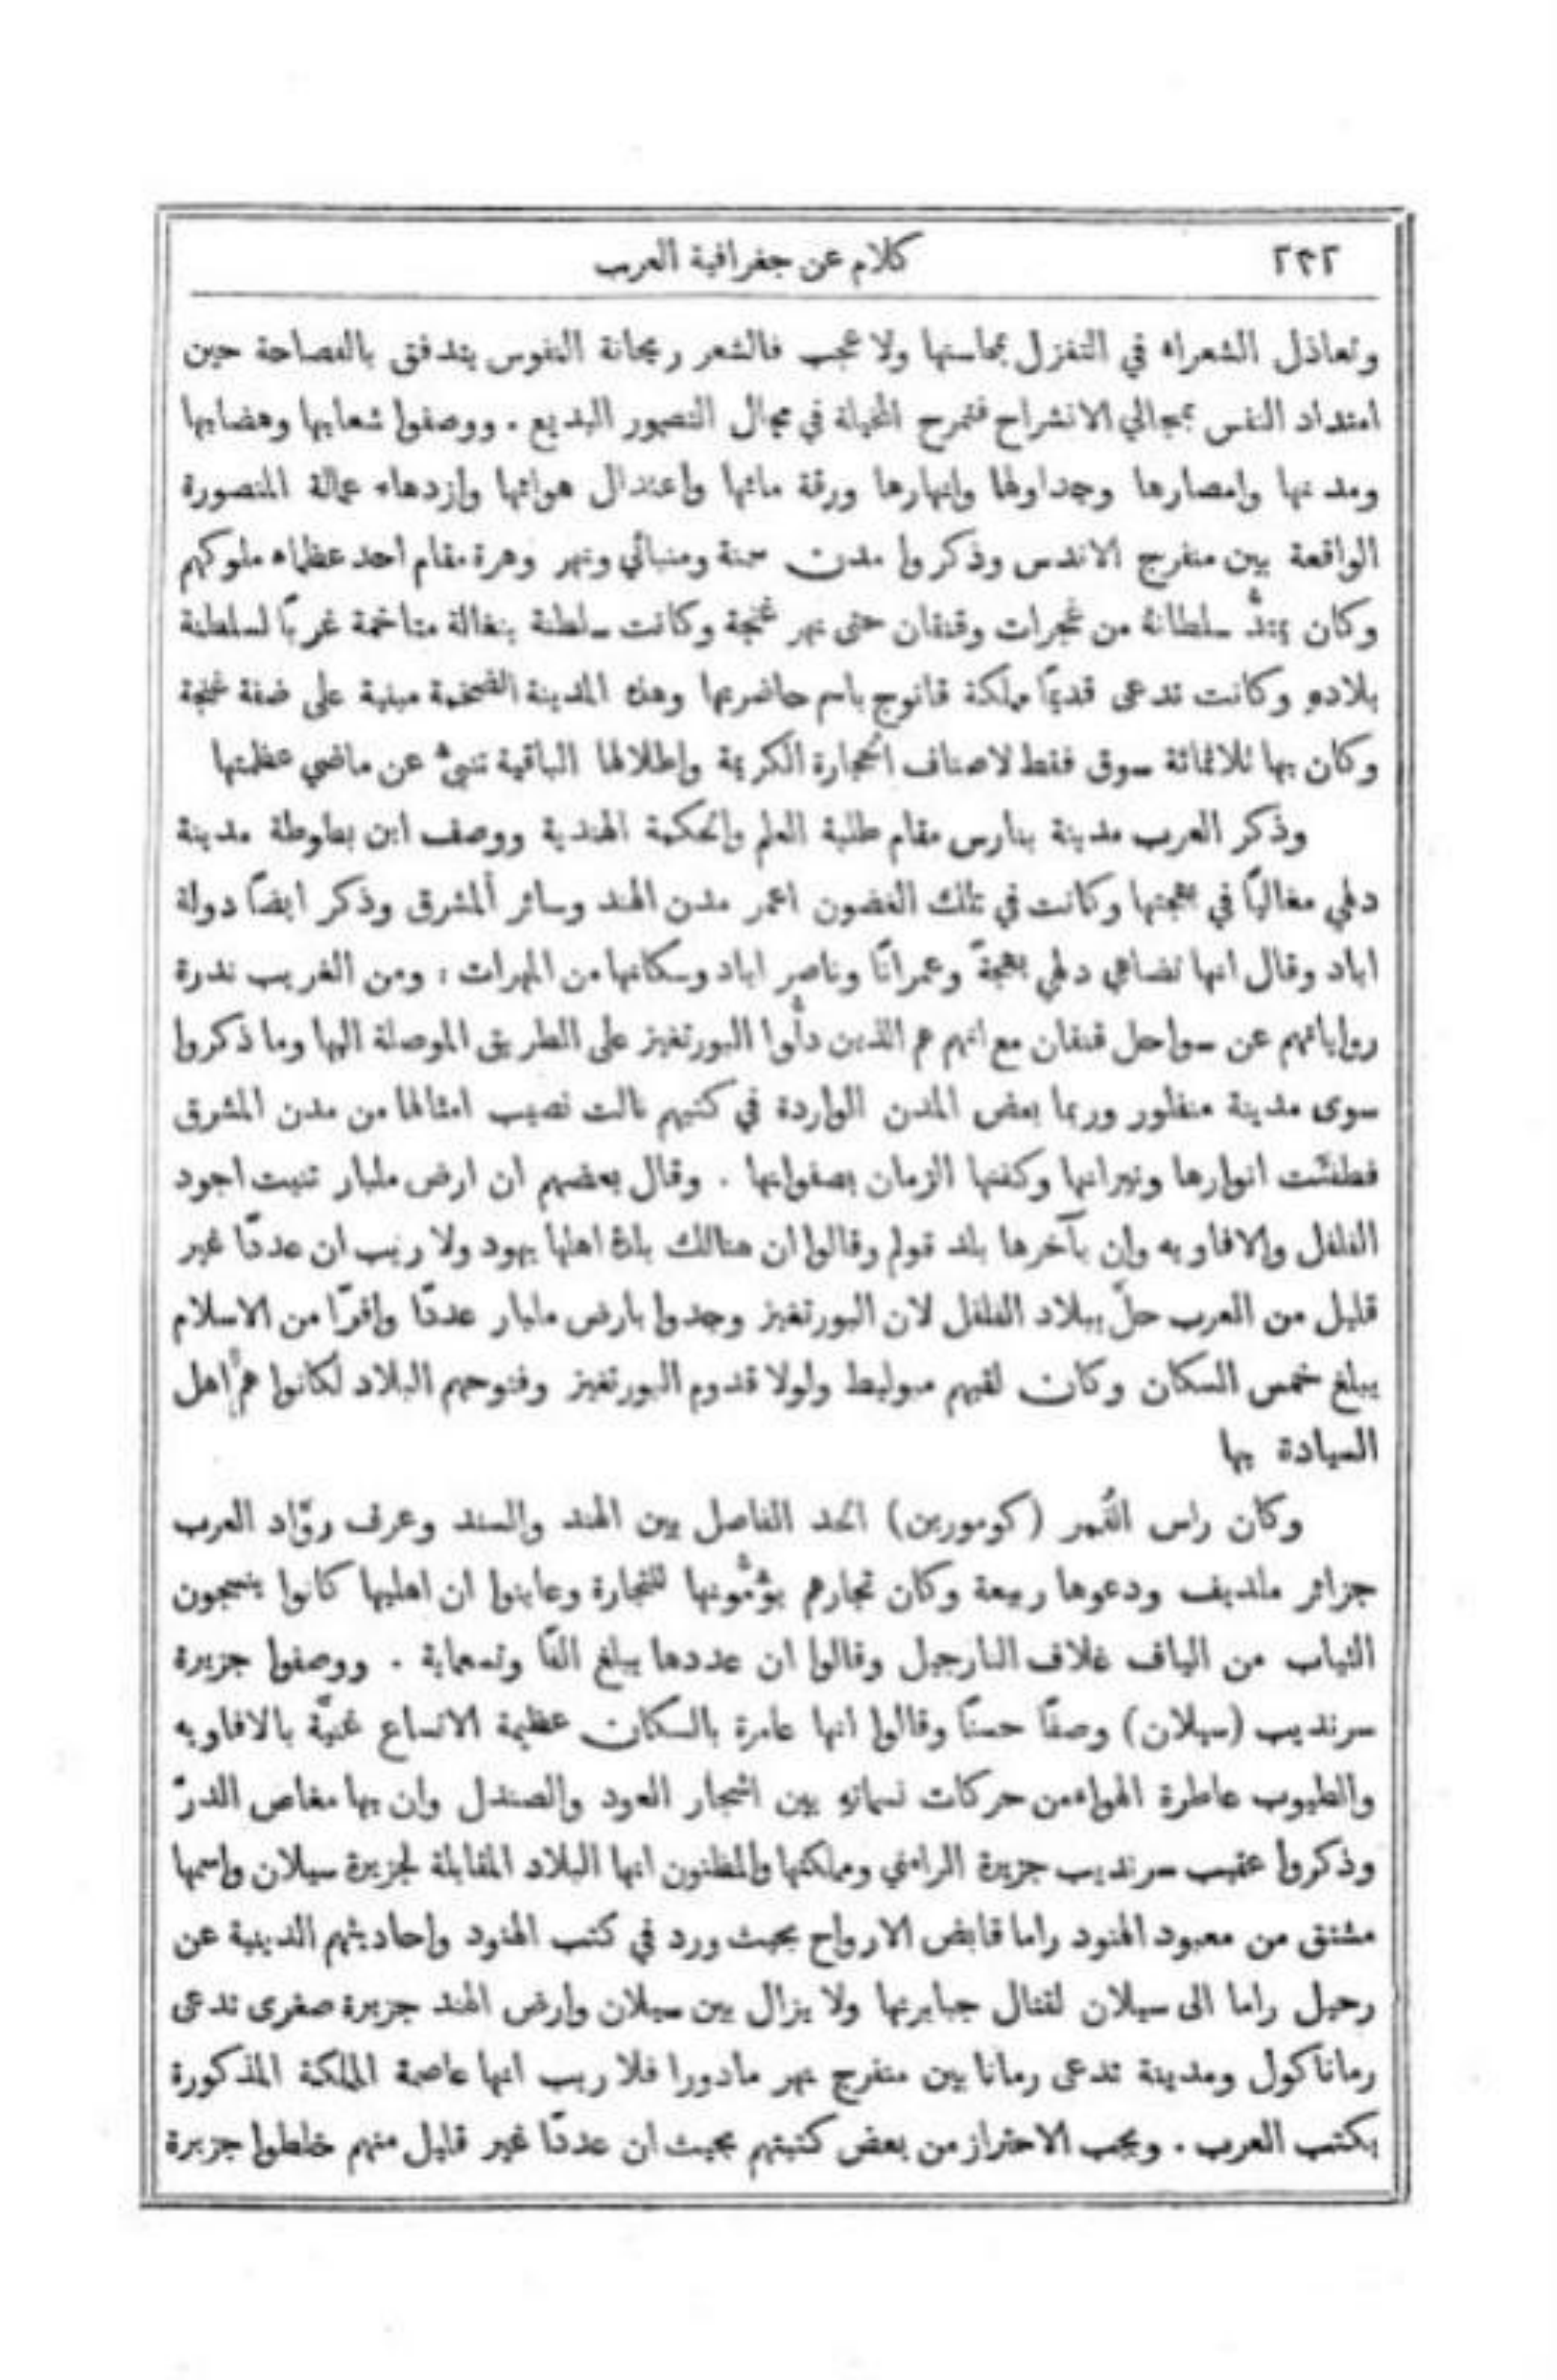 ٢٤٢ كلام عن جغرافية العرب
وتعاذل الشعراء في التغزل بمحاسنها ولا عجب فالشعر ريحانة النفوس يتدفق بالفصاحة حين
امتداد النفس بمجالي الانشراح فتمرح المخيلة في مجال التصور البديع . ووصفوا شعابها وهضابها
ومدنها وامصارها وجداولها وانهارها ورقة مائها واعتدال هوائها وازدهاء عمالة المنصورة
الواقعة بين منفرج الاندس وذكروا مدن سمنة ومنبائي ونهر وهرة مقام احد عظماء ملوكهم
وكان يمتدُّ سلطانهُ من غجرات وقنقان حتى نهر غنجة وكانت سلطنة بنغالة متاخمة غربًا لسلطنة
بلادهِ وكانت تدعى قديمًا مملكة قانوج باسم حاضرتها وهذه المدينة الضخمة مبنية على ضفة غنجة
وكان بها ثلاثمائة سوق فقط لاصناف الحجارة الكريمة واطلالها الباقية تنبئُ عن ماضي عظمتها
وذكر العرب مدينة بنارس مقام طلبة العلم والحكمة الهندية ووصف ابن بطوطة مدينة
دهلي مغاليًا في بهجتها وكانت في تلك الغضون اعمر مدن الهند وسائر المشرق وذكر ايضًا دولة
اباد وقال انها تضاهي دهلي بهجةً وعمرانًا وناصر اباد وسكانها من المهرات : ومن الغريب ندرة
رواياتهم عن سواحل قنقان مع انهم هم الذين دلُّوا البورتغيز على الطريق الموصلة اليها وما ذكروا
سوى مدينة منغلور وربما بعض المدن الواردة في كتبهم نالت نصيب امثالها من مدن المشرق
فطفئت انوارها ونيرانها وكفنها الزمان بصفوانها . وقال بعضهم ان ارض مليبار تنبت اجود
الفلفل والافاويه وان بآخرها بلد قولم وقالوا ان هنالك بلدة اهلها يهود ولا ريب ان عددًا غير
قليل من العرب حلَّ ببلاد الفلفل لان البورتغيز وجدوا بارض مليبار عددًا وافرًا من الاسلام
يبلغ خمس السكان وكان لقبهم مبوليط ولولا قدوم البورتغيز وفتوحهم البلاد لكانوا هم اهل
السيادة بها
وكان راس القُمر (كومورين) الحد الفاصل بين الهند والسند وعرف روّاد العرب
جزائر ملديف ودعوها ربيعة وكان تجارهم يؤمُّونها للتجارة وعاينوا ان اهليها كانوا ينسجون
الثياب من الياف غلاف النارجيل وقالوا ان عددها يبلغ الفًا وتسعماية . ووصفوا جزيرة
سرنديب (سيلان) وصفًا حسنًا وقالوا انها عامرة بالسكان عظيمة الاتساع غنيَّة بالافاويه
والطيوب عاطرة الهواء من حركات نسماتهِ بين اشجار العود والصندل وان بها مغاص الدرّ
وذكروا عقيب سرنديب جزيرة الرامني ومملكتها والمظنون انها البلاد المقابلة لجزيرة سيلان واسمها
مشتق من معبود الهنود راما قابض الارواح بحيث ورد في كتب الهنود واحاديثهم الدينية عن
رحيل راما الى سيلان لقتال جبابرتها ولا يزال بين سيلان وارض الهند جزيرة صغرى تدعى
رماناكول ومدينة تدعى رمانا بين منفرج نهر مادورا فلا ريب انها عاصمة المملكة المذكورة
بكتب العرب . ويجب الاحتراز من بعض كتبتهم بحيث ان عددًا غير قليل منهم خلطوا جزيرة